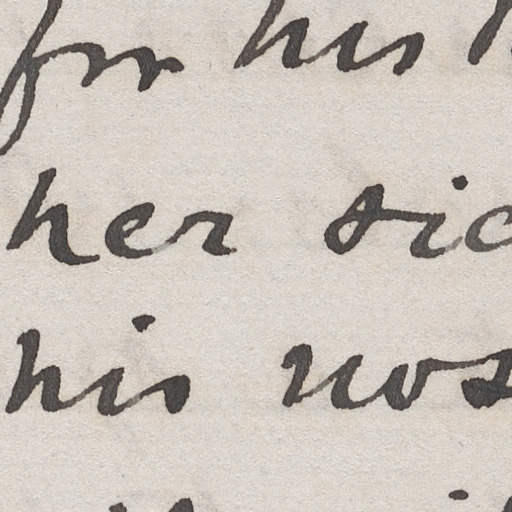 for his
her sic
his nos